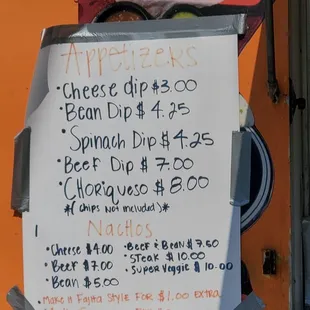 Appetizers
• Cheese dip $3.00
• Bean Dip $4.25
• Spinach Dip $4.25
• Beef Dip $7.00
• CHORiqueso $8.00
*( chips Not included)*
Nachos
• Cheese $4.00 • Beef & Bean $7.50
• Beef $7.00 • STeak $10.00
• Bean $5.00 • Super Veggie $10.00
• Make it Fajita STYLE FOR $1.00 EXTRA